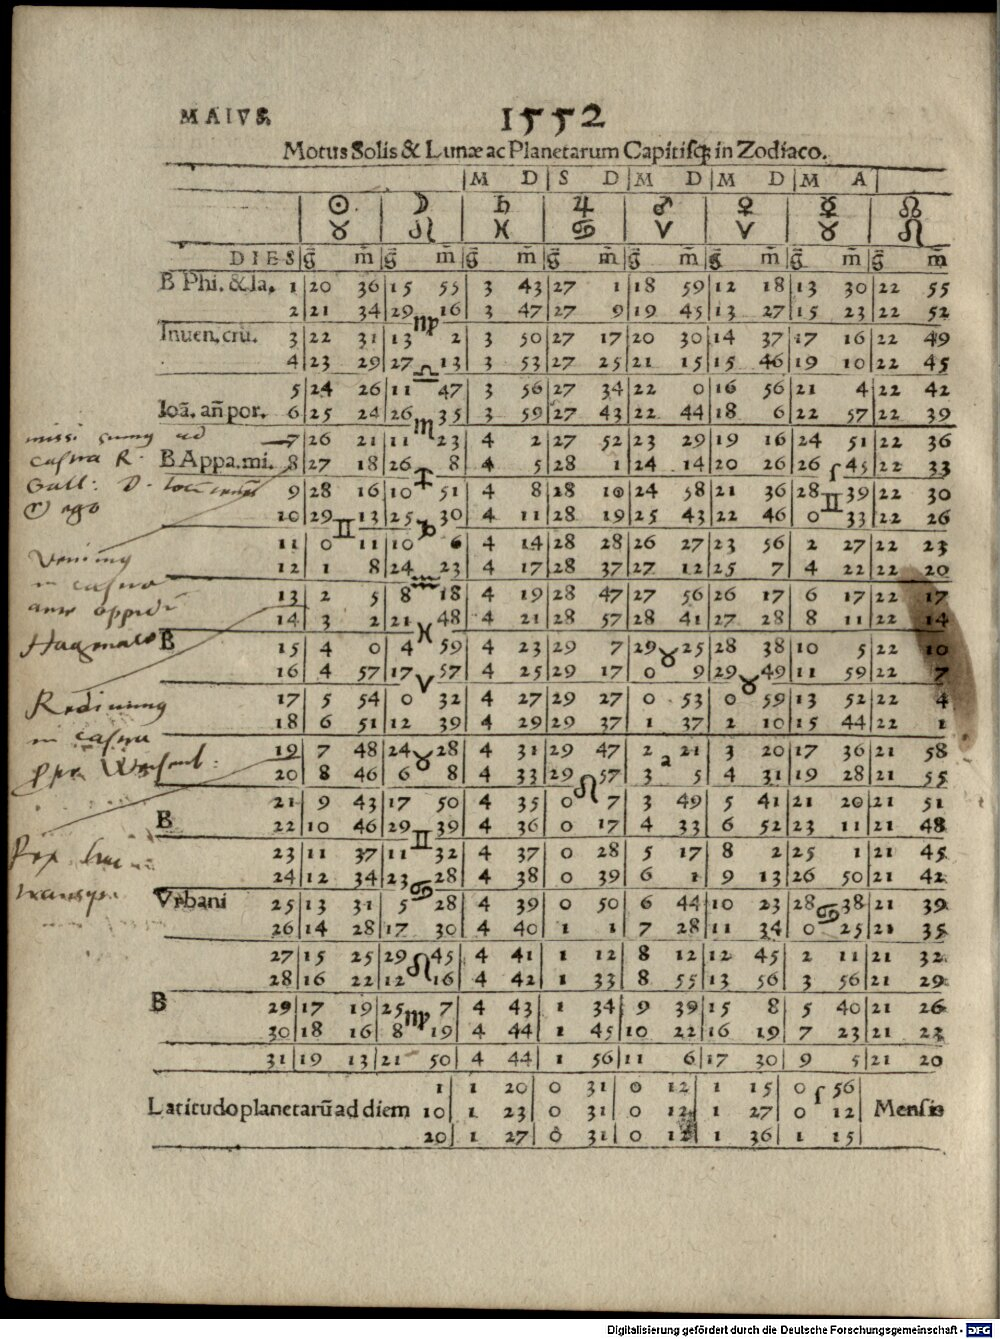 MAIVS.
1552
Motus Solis & Lunæ ac Planetarum Capitisq; in Zodiaco.
M D S D M D M D M A
☉ ☽ ♄ ♃ ♂ ♀ ☿ ☊
♉ ♌ ♓ ♋ ♈ ♈ ♉ ♌
DIES g̃ m̃ g̃ m̃ g̃ m̃ g̃ m̃ g̃ m̃ g̃ m̃ g̃ m̃ g̃ m̃
B Phi. & Ia. 1 20 36 15 55 3 43 27 1 18 59 12 18 13 30 22 55
2 21 34 29 ♍ 16 3 47 27 9 19 45 13 27 15 23 22 52
Inuen. cru. 3 22 31 13 2 3 50 27 17 20 30 14 37 17 16 22 49
4 23 29 27 ♎ 13 3 53 27 25 21 15 15 46 19 10 22 45
5 24 26 11 47 3 56 27 34 22 0 16 56 21 4 22 42
Ioã. añ por. 6 25 24 26 ♏ 35 3 59 27 43 22 44 18 6 22 57 22 39
7 26 21 11 23 4 2 27 52 23 29 19 16 24 51 22 36
B Appa. mi. 8 27 18 26 ♐ 8 4 5 28 1 24 14 20 26 26 ſ 45 22 33
9 28 16 10 51 4 8 28 10 24 58 21 36 28 ♊ 39 22 30
10 29 ♊ 13 25 ♑ 30 4 11 28 19 25 43 22 46 0 33 22 26
11 0 11 10 6 4 14 28 28 26 27 23 56 2 27 22 23
12 1 8 24 ♒ 23 4 17 28 37 27 12 25 7 4 22 22 20
13 2 5 8 18 4 19 28 47 27 56 26 17 6 17 22 17
14 3 2 21 ♓ 48 4 21 28 57 28 41 27 28 8 11 22 14
B 15 4 0 4 59 4 23 29 7 29 ♉ 25 28 38 10 5 22 10
16 4 57 17 ♈ 57 4 25 29 17 0 9 29 ♉ 49 11 59 22 7
17 5 54 0 32 4 27 29 27 0 53 0 59 13 52 22 4
18 6 51 12 39 4 29 29 37 1 37 2 10 15 44 22 1
19 7 48 24 ♉ 28 4 31 29 47 2 a 21 3 20 17 36 21 58
20 8 46 6 8 4 33 29 ♌ 57 3 5 4 31 19 28 21 55
21 9 43 17 50 4 35 0 7 3 49 5 41 21 20 21 51
B 22 10 46 29 ♊ 39 4 36 0 17 4 33 6 52 23 11 21 48
23 11 37 11 32 4 37 0 28 5 17 8 2 25 1 21 45
24 12 34 23 ♋ 28 4 38 0 39 6 1 9 13 26 50 21 42
Vrbani 25 13 31 5 28 4 39 0 50 6 44 10 23 28 ♋ 38 21 39
26 14 28 17 30 4 40 1 1 7 28 11 34 0 25 21 35
27 15 25 29 ♌ 45 4 41 1 12 8 12 12 45 2 11 21 32
28 16 22 12 16 4 42 1 33 8 55 13 56 3 56 21 29
B 29 17 19 25 ♍ 7 4 43 1 34 9 39 15 8 5 40 21 26
30 18 16 8 19 4 44 1 45 10 22 16 19 7 23 21 23
31 19 13 21 50 4 44 1 56 11 6 17 30 9 5 21 20
1 1 20 0 31 0 12 1 15 0 ſ 56
Latitudo planetarũ ad diem 10 1 23 0 31 0 12 1 27 0 12 Mensis
20 1 27 0 31 0 12 1 36 1 15
missi sumus ad
castra R.
Gall:
ego
Venimus
in castra
ante oppidũ
Redimus
in castra
Digitalisierung gefördert durch die Deutsche Forschungsgemeinschaft - DFG